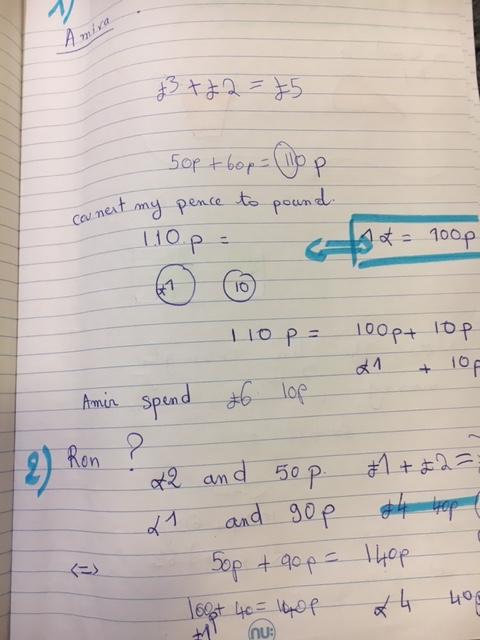 1)
Amira
£3 + £2 = £5
50p + 60p = 110 p
convert my pence to pound.
110 p =
1£ = 100p
£1 10
110 p = 100p + 10p
£1 + 10p
Amir spend £6 10p
2) Ron ?
£2 and 50p. £1 + £2 =
£1 and 90p £4 40p
<=> 50p + 90p = 140p
100p + 40 = 140p £4 40p
£1
nu: